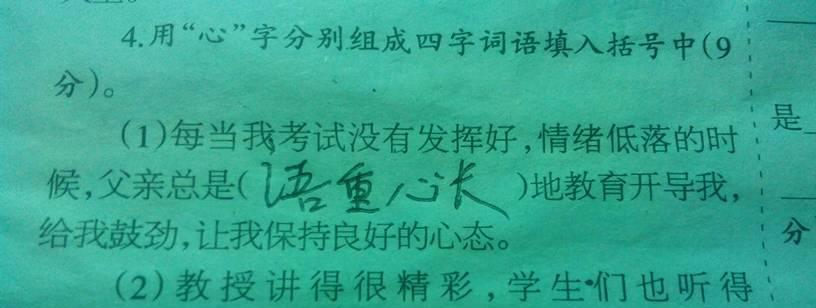 4.用“心”字分别组成四字词语填入括号中(9
分)。
(1)每当我考试没有发挥好,情绪低落的时
候,父亲总是( 语重心长 )地教育开导我,
给我鼓劲,让我保持良好的心态。
(2)教授讲得很精彩,学生们也听得
是
分